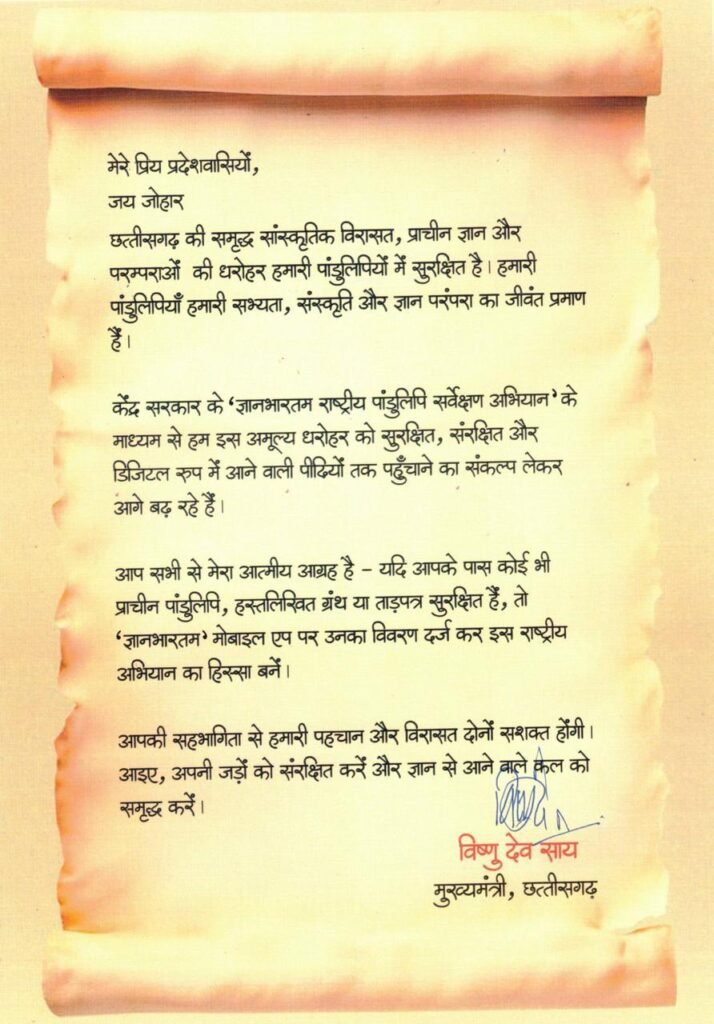 मेरे प्रिय प्रदेशवासियों,
जय जोहार
छत्तीसगढ़ की समृद्ध सांस्कृतिक विरासत, प्राचीन ज्ञान और
परम्पराओं की धरोहर हमारी पांडुलिपियों में सुरक्षित है। हमारी
पांडुलिपियाँ हमारी सभ्यता, संस्कृति और ज्ञान परंपरा का जीवंत प्रमाण
हैं।
केंद्र सरकार के ‘ज्ञानभारतम राष्ट्रीय पांडुलिपि सर्वेक्षण अभियान’ के
माध्यम से हम इस अमूल्य धरोहर को सुरक्षित, संरक्षित और
डिजिटल रुप में आने वाली पीढ़ियों तक पहुँचाने का संकल्प लेकर
आगे बढ़ रहे हैं।
आप सभी से मेरा आत्मीय आग्रह है – यदि आपके पास कोई भी
प्राचीन पांडुलिपि, हस्तलिखित ग्रंथ या ताड़पत्र सुरक्षित हैं, तो
‘ज्ञानभारतम’ मोबाइल एप पर उनका विवरण दर्ज कर इस राष्ट्रीय
अभियान का हिस्सा बनें।
आपकी सहभागिता से हमारी पहचान और विरासत दोनों सशक्त होंगी।
आइए, अपनी जड़ों को संरक्षित करें और ज्ञान से आने वाले कल को
समृद्ध करें।
विष्णु देव साय
मुख्यमंत्री, छत्तीसगढ़